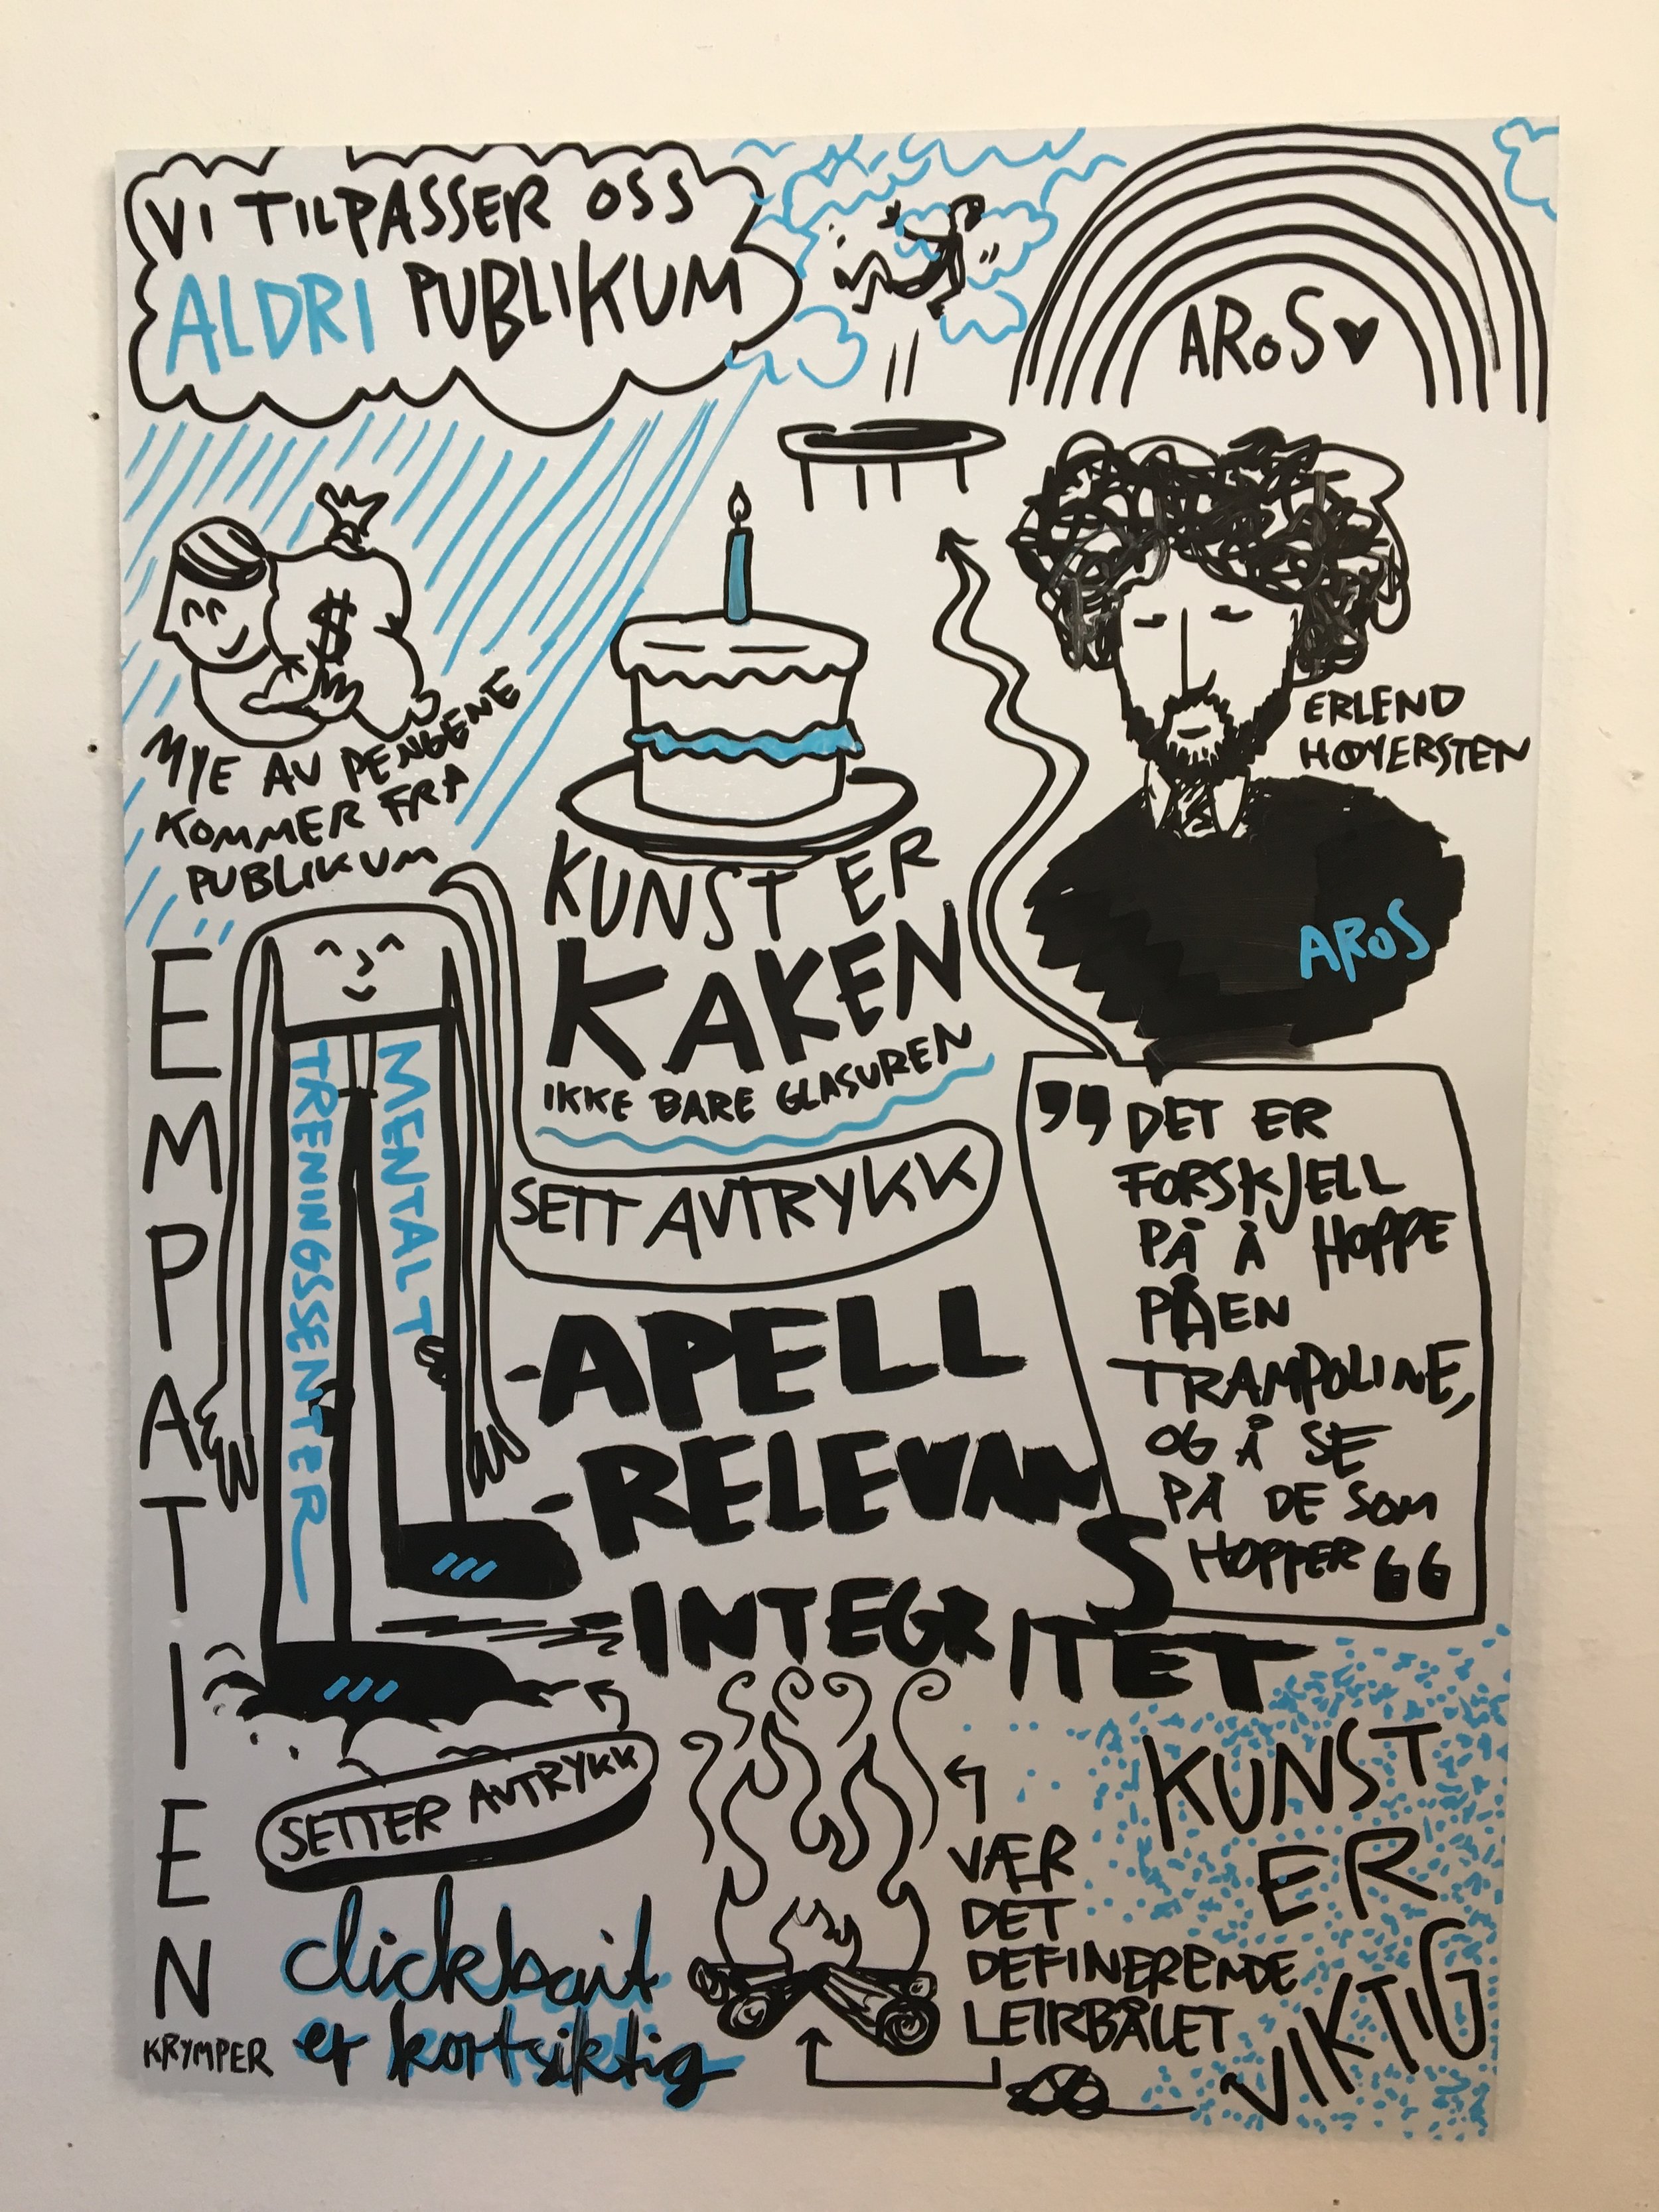 VI TILPASSER OSS
ALDRI PUBLIKUM
AROS
$
MYE AV PENGENE
KOMMER FRA
PUBLIKUM
ERLEND
HØYERSTEN
AROS
KUNST ER
KAKEN
IKKE BARE GLASUREN
SETT AVTRYKK
EMPATIEN
KRYMPER
MENTALT
TRENINGSSENTER
” DET ER
FORSKJELL
PÅ Å HOPPE
PÅ EN
TRAMPOLINE,
OG Å SE
PÅ DE SOM
HOPPER “
-APELL
-RELEVANS
-INTEGRITET
SETTER AVTRYKK
clickbait
er kortsiktig
VÆR
DET
DEFINERENDE
LEIRBÅLET
KUNST
ER
VIKTIG